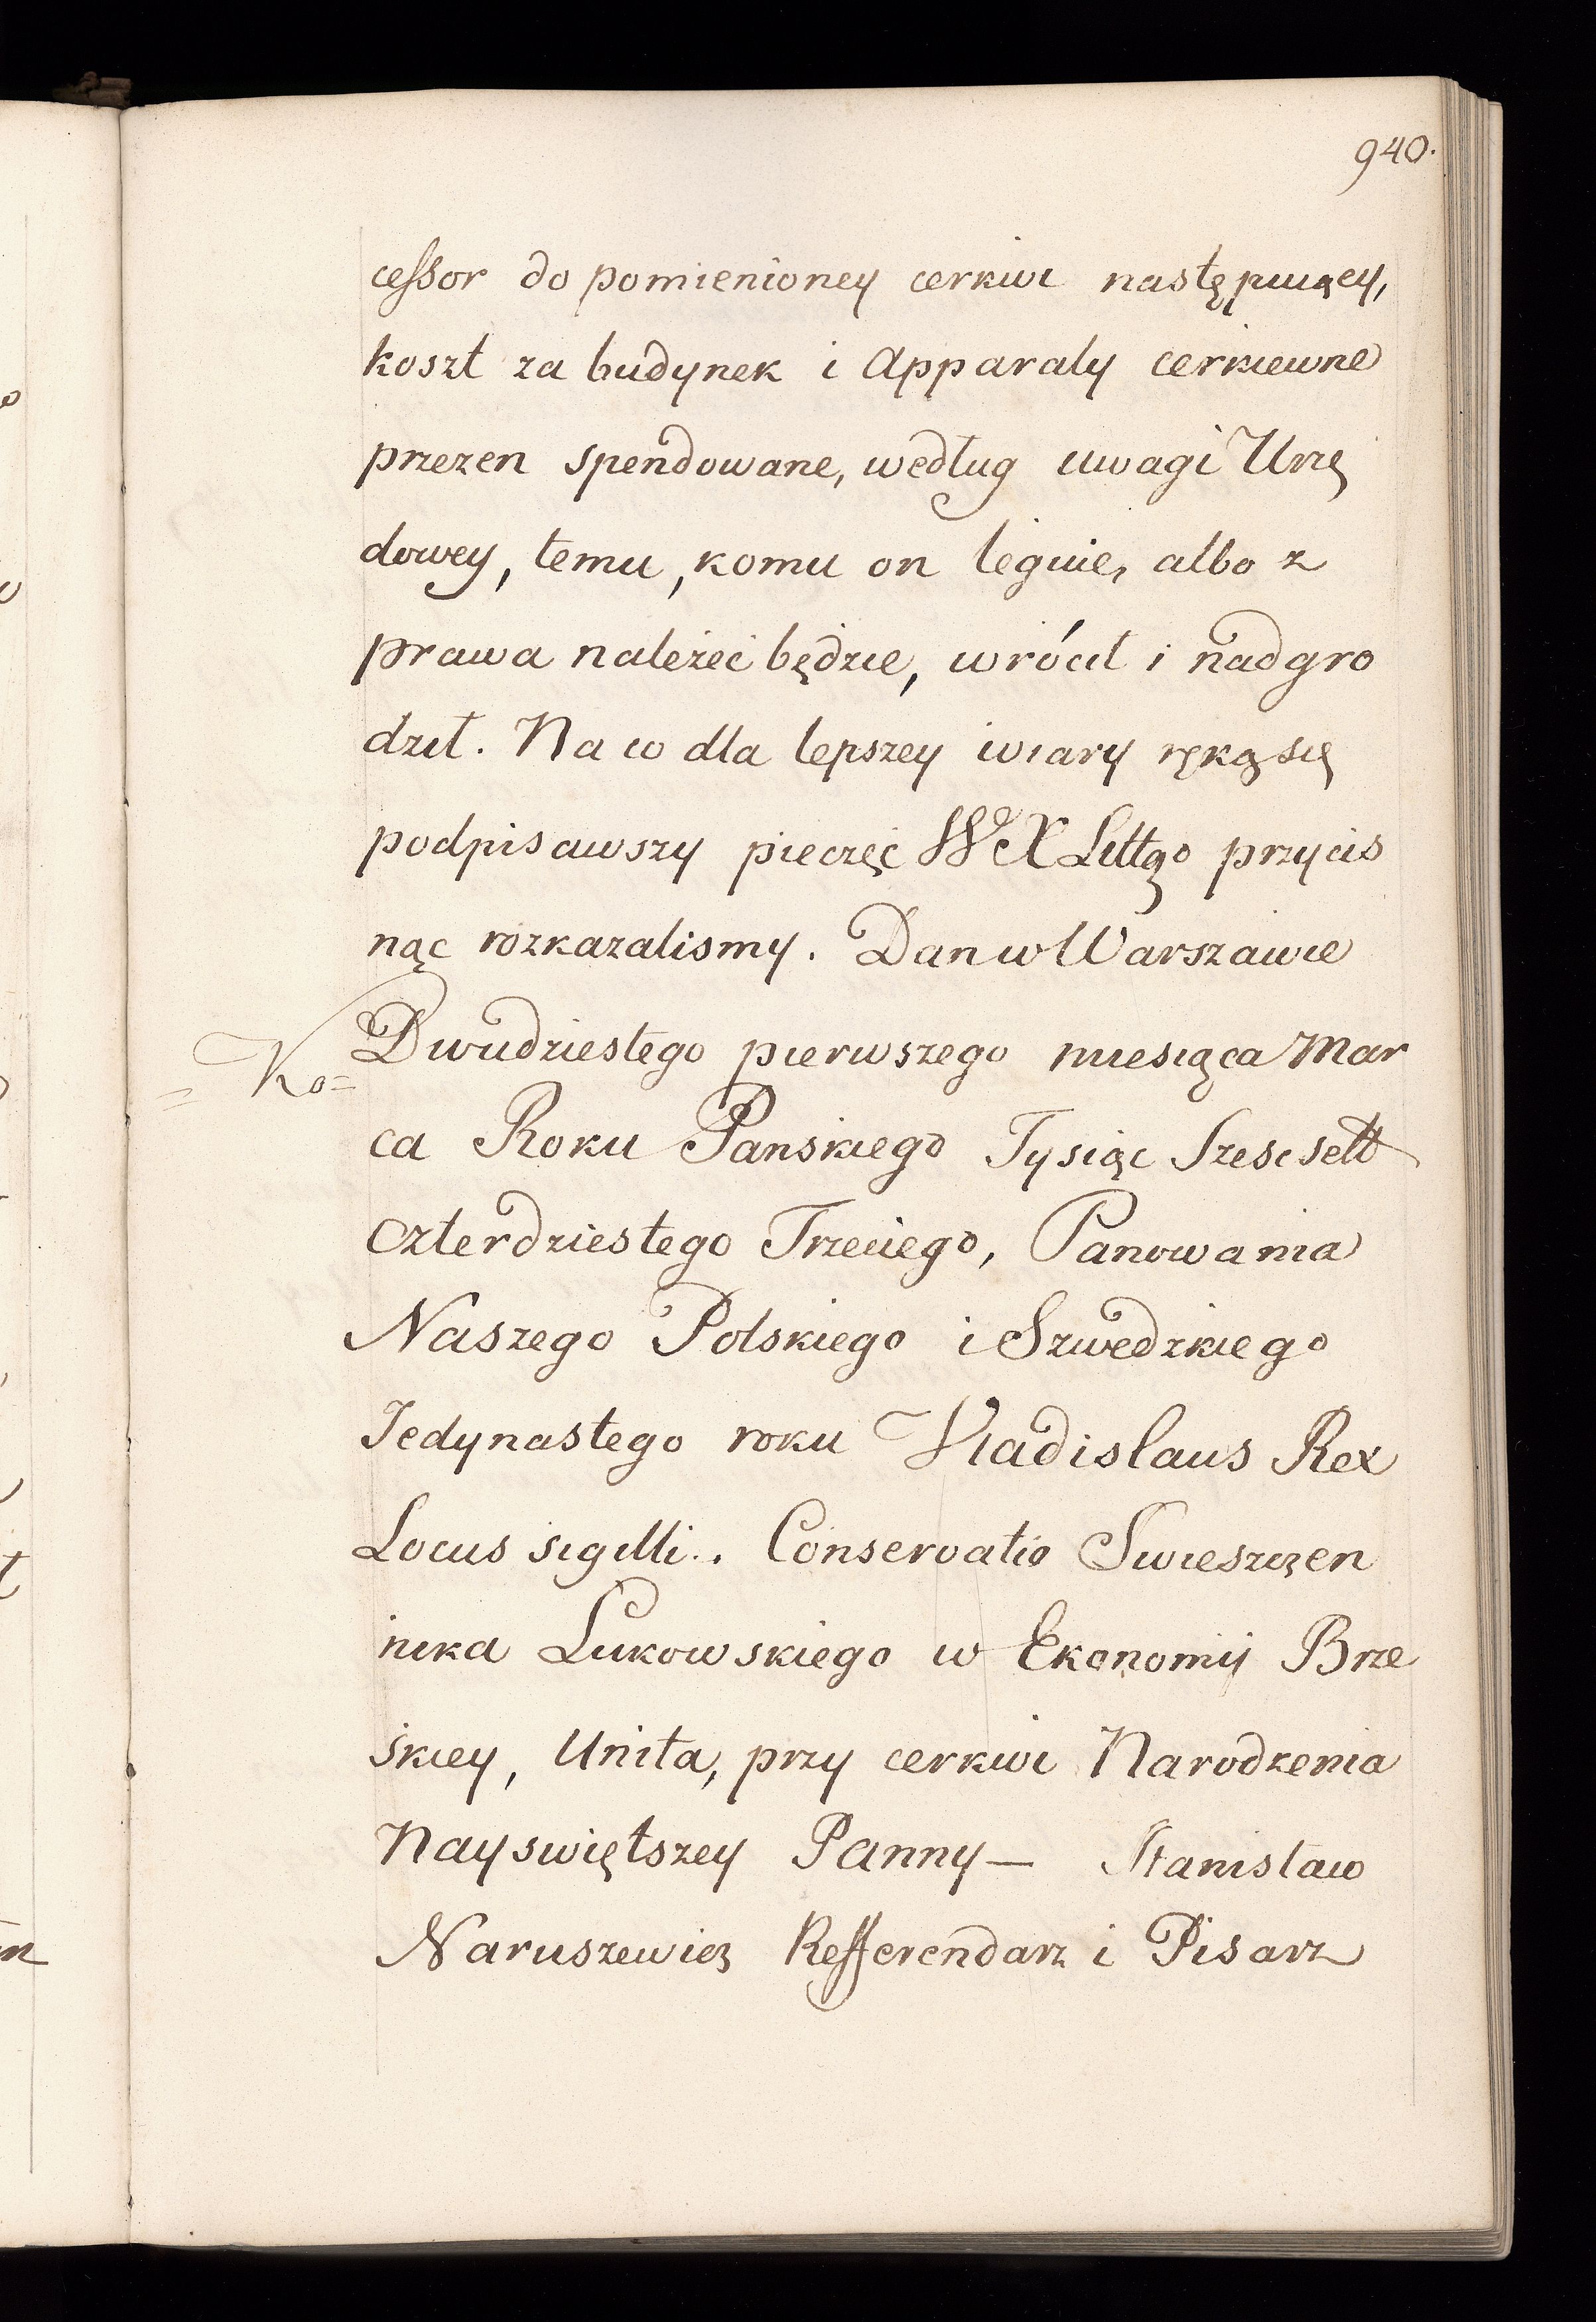 940.
cessor do pomienioney cerkwi następuiący,
koszt za budynek i Apparaty cerkiewne
przezen spendowane, według uwagi Urzę
dowey, temu, komu on leguie, albo z
prawa należeć będzie, wrócił i nadgro
dził. Na co dla lepszey wiary ręką się
podpisawszy pieczęć W X Littgo przycis
nąc rozkazalismy. Dan w Warszawie
Dwudziestego pierwszego miesiąca Mar
= Ko=
ca Roku Panskiego Tysiąc Szescsett
czterdziestego Trzeciego, Panowania
Naszego Polskiego i Szwedzkiego
Jedynastego roku Vladislaus Rex
Locus sigilli.. Conservatio Swieszczen
nika Lukowskiego w Ekonomij Brze
skiey, Unita, przy cerkwi Narodzenia
Nayswiętszey Panny — Stanisław
Naruszewicz Refferendarz i Pisarz